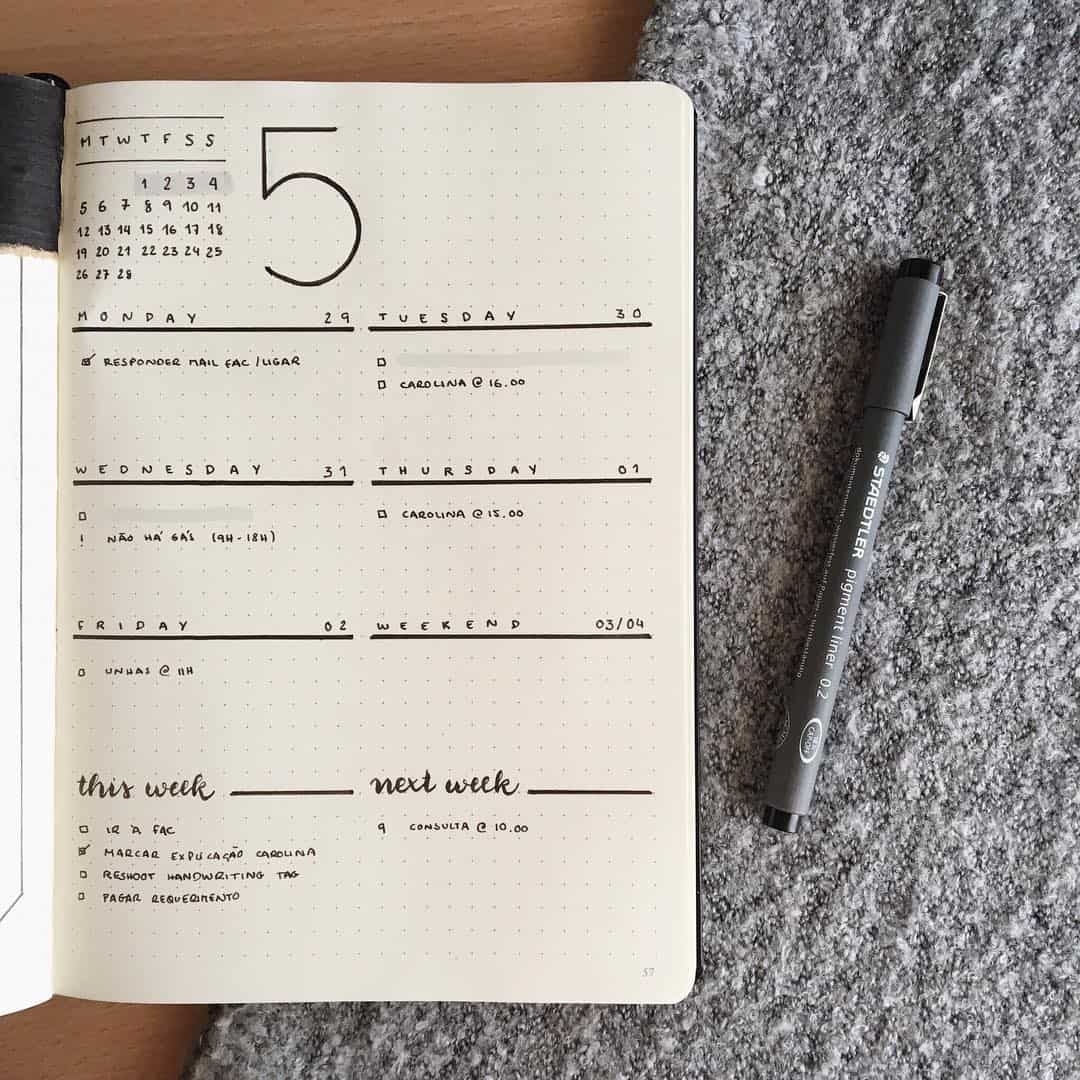 M T W T F S S
1 2 3 4
5 6 7 8 9 10 11
12 13 14 15 16 17 18
19 20 21 22 23 24 25
26 27 28
5
MONDAY 29
RESPONDER MAIL FAC / LIGAR
TUESDAY 30
CAROLINA @ 16.00
WEDNESDAY 31
! NÃO HÁ GÁS (9H-18H)
THURSDAY 01
CAROLINA @ 15.00
FRIDAY 02
UNHAS @ 11H
WEEKEND 03/04
this week
IR À FAC
MARCAR EXPLICAÇÃO CAROLINA
RESHOOT HANDWRITING TAG
PAGAR REQUERIMENTO
next week
9 CONSULTA @ 10.00
57
STAEDTLER pigment liner 0.2